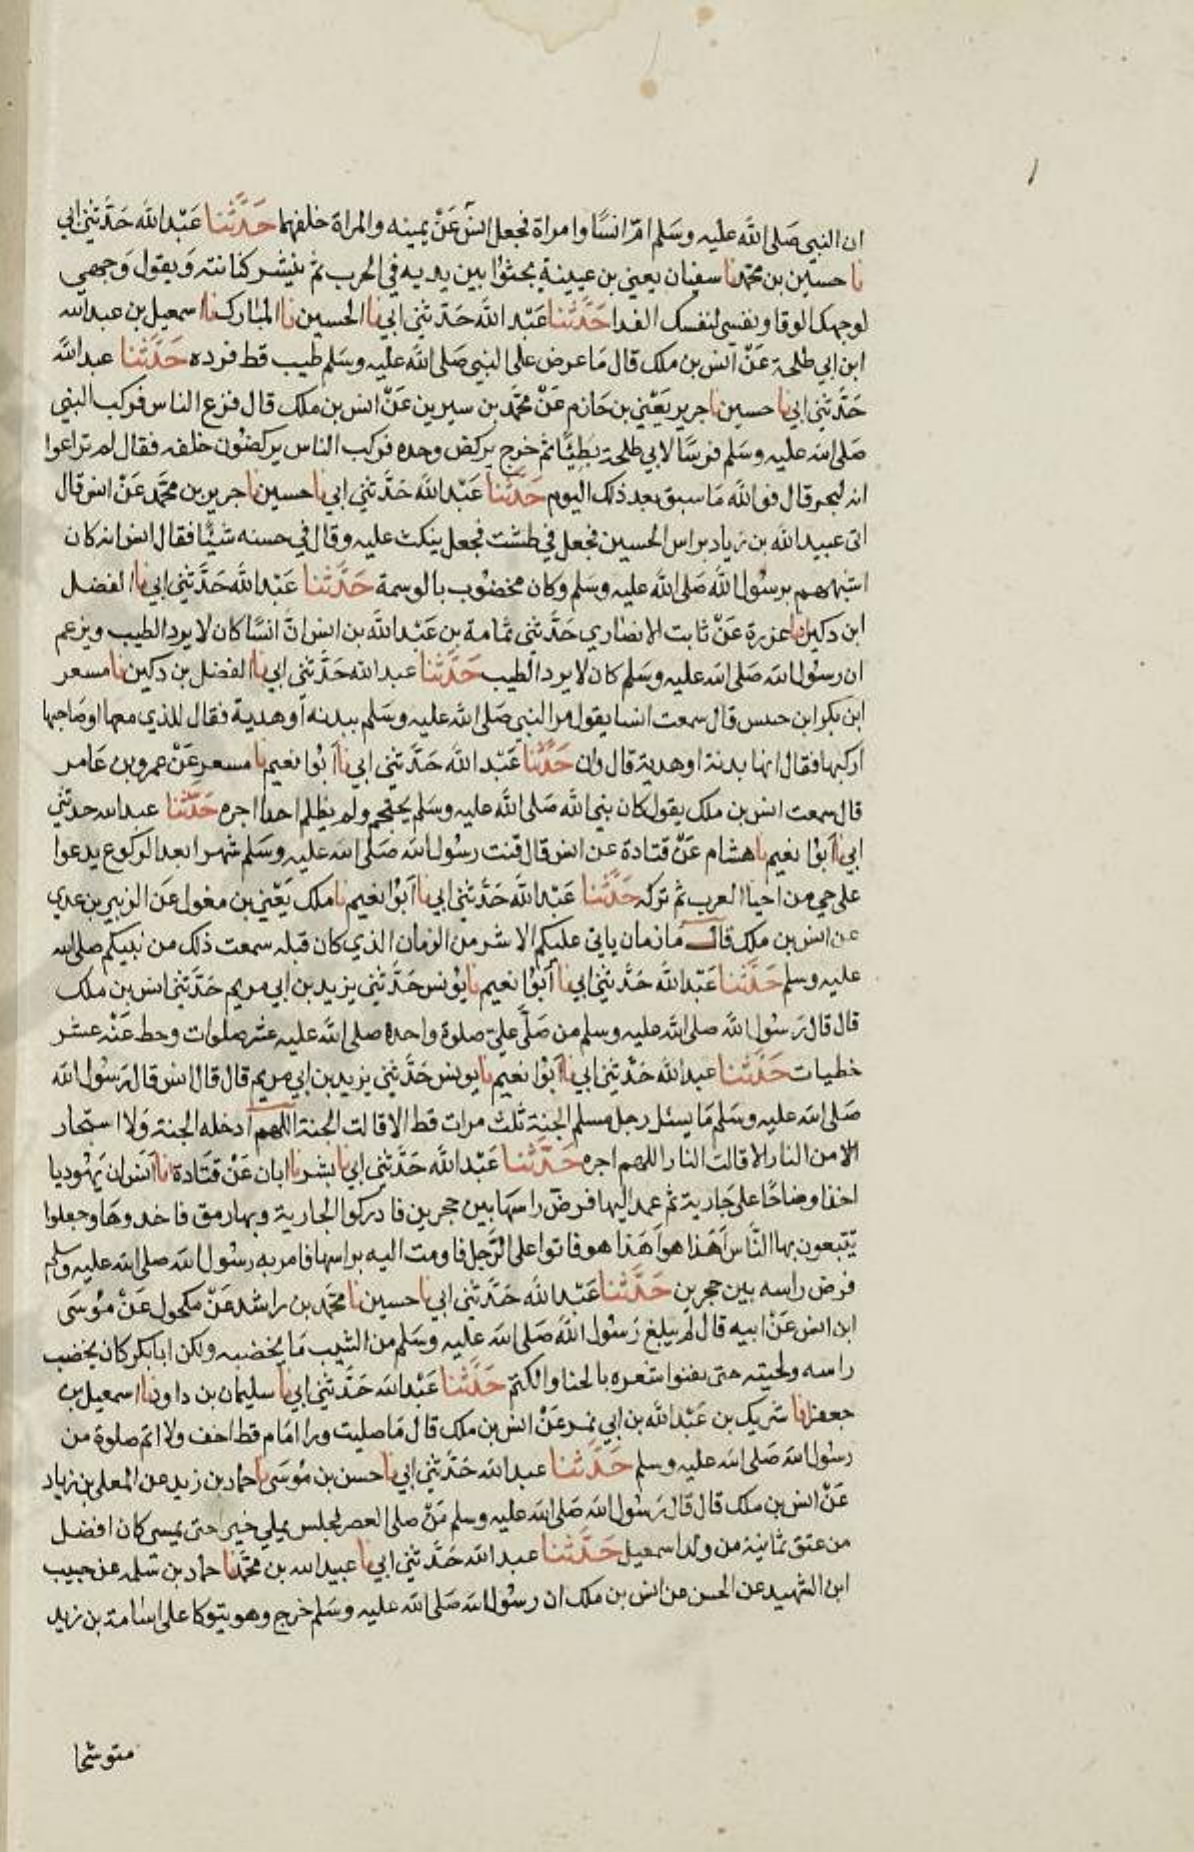 ان النبي صلى الله عليه وسلم ام انسا وامراة فجعل انس عن يمينه والمراة خلفهما حدثنا عبد الله حدثني ابي
نا حسين بن محمد نا سفيان يعني بن عيينة يجثوا بين يديه في الحرب ثم ينشر كنانته ويقول وجهي
لوجهك الوقا ونفسي لنفسك الفدا حدثنا عبد الله حدثني ابي نا الحسين نا المبارك نا اسمعيل بن عبد الله
ابن ابي طلحة عن انس بن ملك قال ما عرض على النبي صلى الله عليه وسلم طيب قط فرده حدثنا عبد الله
حدثني ابي نا حسين نا جرير يعني بن حازم عن محمد بن سيرين عن انس بن ملك قال فزع الناس فركب النبي
صلى الله عليه وسلم فرسا لابي طلحة بطيئا ثم خرج يركض وحده فركب الناس يركضون خلفه فقال لم تراعوا
انه لبحر قال فو الله ما سبق بعد ذلك اليوم حدثنا عبد الله حدثني ابي نا حسين نا جرير بن محمد عن انس قال
اتى عبيد الله بن زياد براس الحسين فجعل في طشت فجعل ينكت عليه وقال في حسنه شيئا فقال انس انه كان
اشبههم برسول الله صلى الله عليه وسلم وكان مخضوب بالوسمة حدثنا عبد الله حدثني ابي نا الفضل
ابن دكين نا عزرة عن ثابت الانصاري حدثني ثمامة بن عبد الله بن انس ان انسا كان لا يرد الطيب ويزعم
ان رسول الله صلى الله عليه وسلم كان لا يرد الطيب حدثنا عبد الله حدثني ابي نا الفضل بن دكين نا مسعر
ابن بكر ابن حدس قال سمعت انسا يقول مر النبي صلى الله عليه وسلم ببدنه او هدية فقال للذي معها او صاحبها
اركبها فقال انها بدنة او هدية قال وان حدثنا عبد الله حدثني ابي نا ابوا نعيم نا مسعر عن عمرو بن عامر
قال سمعت انس بن ملك يقول كان نبي الله صلى الله عليه وسلم يحتجم ولم يظلم احدا اجره حدثنا عبد الله حدثني
ابي نا ابوا نعيم نا هشام عن قتادة عن انس قال قنت رسول الله صلى الله عليه وسلم شهرا بعد الركوع يدعوا
على حي من احيا العرب ثم تركه حدثنا عبد الله حدثني ابي نا ابوا نعيم نا ملك يعني بن مغول عن الزبير بن عدي
عن انس بن ملك قال ما زمان ياتي عليكم الا شر من الزمان الذي كان قبله سمعت ذلك من نبيكم صلى الله
عليه وسلم حدثنا عبد الله حدثني ابي نا ابوا نعيم نا يونس حدثني يزيد بن ابي مريم حدثني انس بن ملك
قال قال رسول الله صلى الله عليه وسلم من صلى علي صلوة واحدة صلى الله عليه عشر صلوات وحط عنه عشر
خطيات حدثنا عبد الله حدثني ابي نا ابوا نعيم نا يونس حدثني يزيد بن ابي مريم قال قال انس قال رسول الله
صلى الله عليه وسلم ما يسئل رجل مسلم الجنة ثلث مرات قط الا قالت الجنة اللهم ادخله الجنة ولا استجار
الا من النار الا قالت النار اللهم اجره حدثنا عبد الله حدثني ابي نا بشر نا ابان عن قتادة نا انس ان يهوديا
اخذ اوضاحا على جارية ثم عمد اليها فرض راسها بين حجرين فادركوا الجارية وبها رمق فاخدوها وجعلوا
يتتبعون بها الناس اهذا هو اهذا هو فاتوا على الرجل فاومت اليه براسها فامر به رسول الله صلى الله عليه وسلم
فرض راسه بين حجرين حدثنا عبد الله حدثني ابي نا حسين نا محمد بن راشد عن مكحول عن موسى
ابن انس عن ابيه قال لم يبلغ رسول الله صلى الله عليه وسلم من الشيب ما يخضبه ولكن ابا بكر كان يخضب
راسه ولحيته حتى يقنوا شعره بالحنا والكتم حدثنا عبد الله حدثني ابي نا سليمان بن داود نا اسمعيل بن
جعفر نا شريك بن عبد الله بن ابي نمر عن انس بن ملك قال ما صليت ورا امام قط اخف ولا اتم صلوة من
رسول الله صلى الله عليه وسلم حدثنا عبد الله حدثني ابي نا حسن بن موسى نا حماد بن زيد عن المعلى بن زياد
عن انس بن ملك قال قال رسول الله صلى الله عليه وسلم من صلى العصر فجلس يملي خير حتى يمسي كان افضل
من عتق ثمانية من ولد اسمعيل حدثنا عبد الله حدثني ابي نا عبيد الله بن محمد نا حماد بن سلمه عن حبيب
ابن الشهيد عن الحسن عن انس بن ملك ان رسول الله صلى الله عليه وسلم خرج وهو يتوكا على اسامة بن زيد
متوشحا